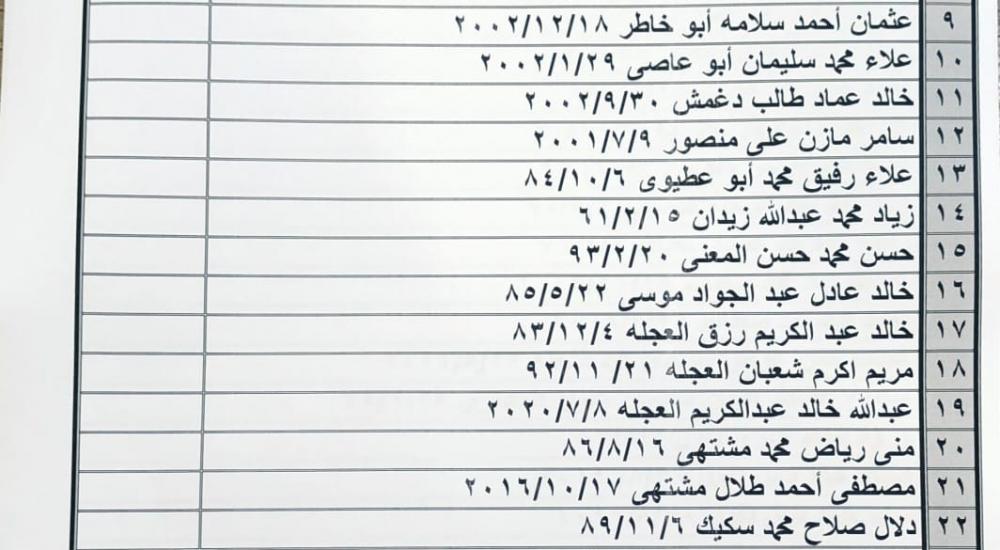 ٩ عثمان أحمد سلامه أبو خاطر ٢٠٠٢/١٢/١٨
١٠ علاء محمد سليمان أبو عاصى ٢٠٠٢/١/٢٩
١١ خالد عماد طالب دغمش ٢٠٠٢/٩/٣٠
١٢ سامر مازن على منصور ٢٠٠١/٧/٩
١٣ علاء رفيق محمد أبو عطيوى ٨٤/١٠/٦
١٤ زياد محمد عبدالله زيدان ٦١/٢/١٥
١٥ حسن محمد حسن المغنى ٩٣/٢/٢٠
١٦ خالد عادل عبد الجواد موسى ٨٥/٥/٢٢
١٧ خالد عبد الكريم رزق العجله ٨٣/١٢/٤
١٨ مريم اكرم شعبان العجله ٩٢/١١/٢١
١٩ عبدالله خالد عبدالكريم العجله ٢٠٢٠/٧/٨
٢٠ منى رياض محمد مشتهى ٨٦/٨/١٦
٢١ مصطفى أحمد طلال مشتهى ٢٠١٦/١٠/١٧
٢٢ دلال صلاح محمد سكيك ٨٩/١١/٦